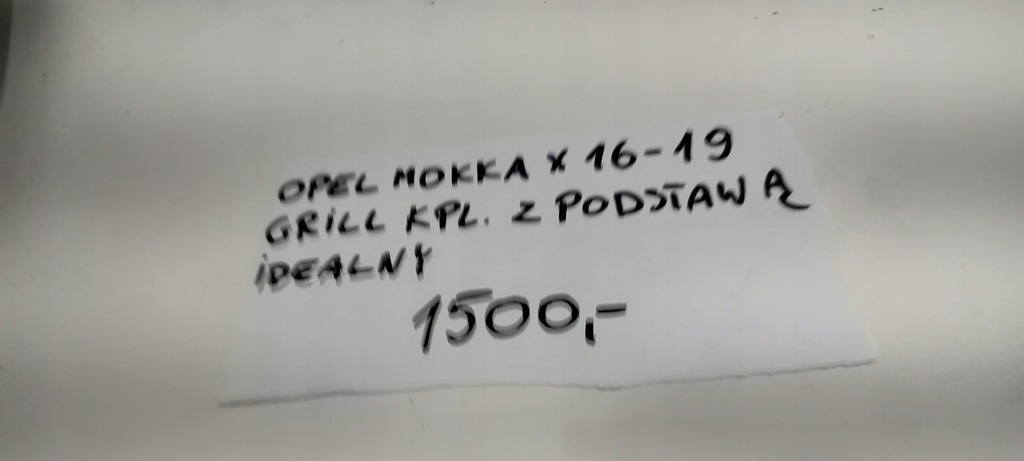 OPEL MOKKA X 16-19
GRILL KPL. Z PODSTAWĄ
iDEALNY
1500,-